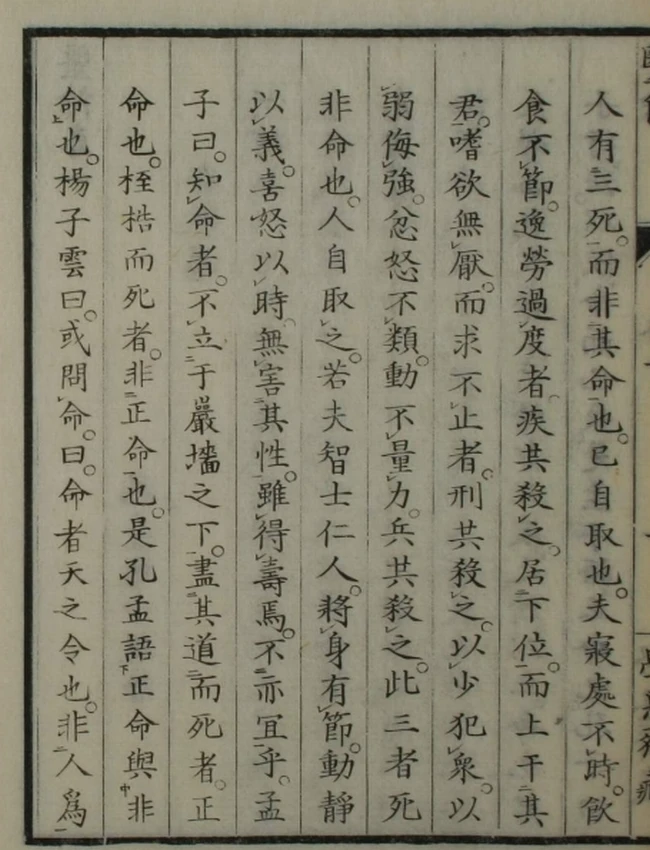 人有三死。而非其命也。已自取也。夫寢處不時。飲
食不節。逸勞過度者。疾共殺之。居下位。而上干其
君。嗜欲無厭。而求不止者。刑共殺之。以少犯衆。以
弱侮強。忿怒不類。動不量力。兵共殺之。此三者死
非命也。人自取之。若夫智士仁人。將身有節。動靜
以義。喜怒以時。無害其性。雖得壽焉。不亦宜乎。孟
子曰。知命者。不立于嚴墻之下。盡其道而死者。正
命也。桎梏而死者。非正命也。是孔孟語正命與非
命也。楊子雲曰。或問命。曰。命者天之令也。非人爲